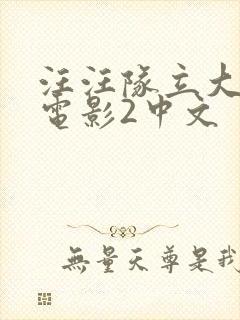 汪汪隊立大
電影2中文
無量天尊是我